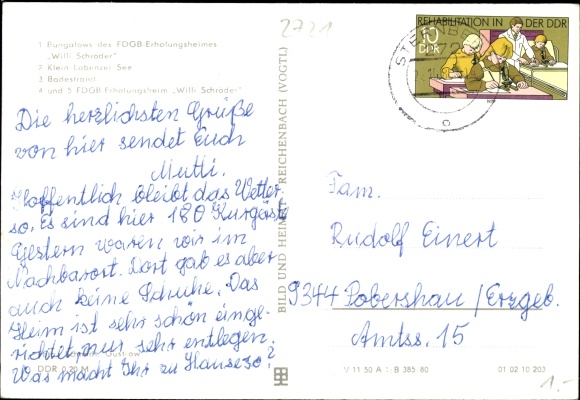 2721
REHABILITATION IN DER DDR
10
DDR
STERNB
272
1 Bungalows des FDGB-Erholungsheimes
„Willi Schröder"
2 Klein Labenzer See
3 Badestrand
4 und 5 FDGB-Erholungsheim „Willi Schröder"
Die herzlichsten Grüße
von hier sendet Euch
Mutti.
Hoffentlich bleibt das Wetter
so. Es sind hier 180 Kurgäste
Gestern waren wir im
Nachbarort. Dort gab es aber
auch keine Schuhe. Das
Heim ist sehr schön einge-
richtet, nur sehr entlegen.
Was macht Ihr zu Hause so?
DDR 0,20 M
BILD UND HEIMAT REICHENBACH (VOGTL)
Fam.
Rudolf Einert
9344 Pobershau/Erzgeb.
Amtss. 15
V 11 50 A 1/B 385/80
01 02 10 203
1.-